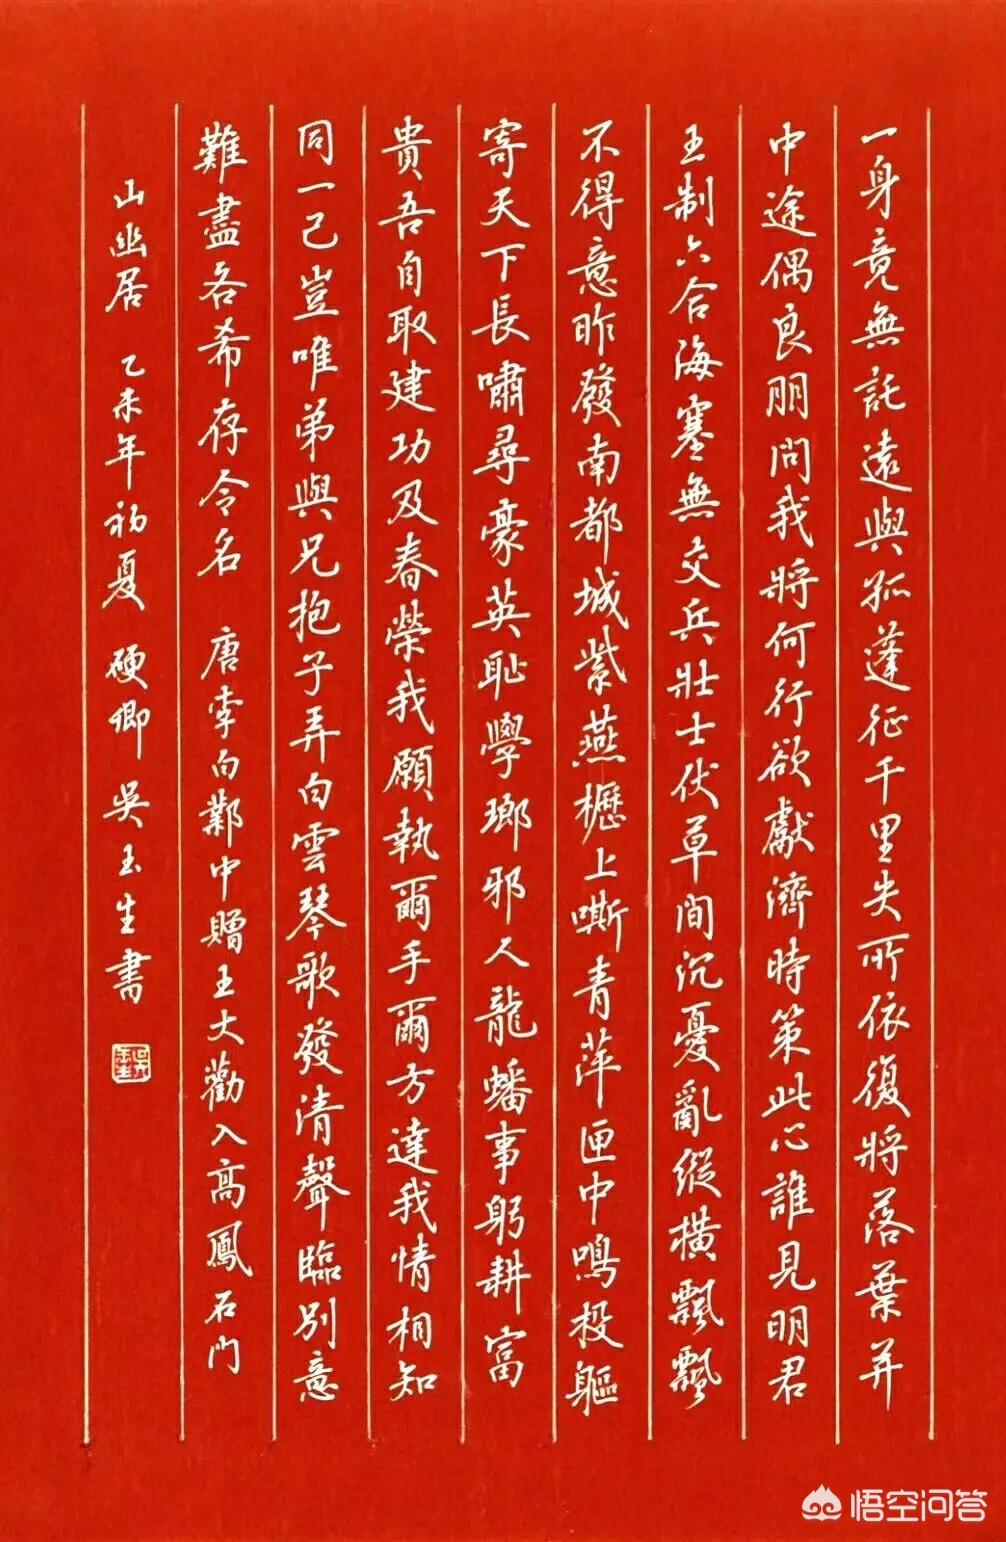 一身竟無託遠與孤蓬征千里失所依復將落葉并
中途偶良朋問我將何行欲獻濟時策此心誰見明君
王制六合海塞無交兵壯士伏草間沉憂亂縱橫飄飄
不得意昨發南都城紫燕櫪上嘶青萍匣中鳴投軀
寄天下長嘯尋豪英恥學瑯邪人龍蟠事躬耕富
貴吾自取建功及春榮我願執爾手爾方達我情相知
同一己豈唯弟與兄抱子弄白雲琴歌發清聲臨別意
難盡各希存令名 唐李白鄴中贈王大勸入高鳳石門
山幽居 乙未年初夏 硬卿吳玉生書
悟空问答